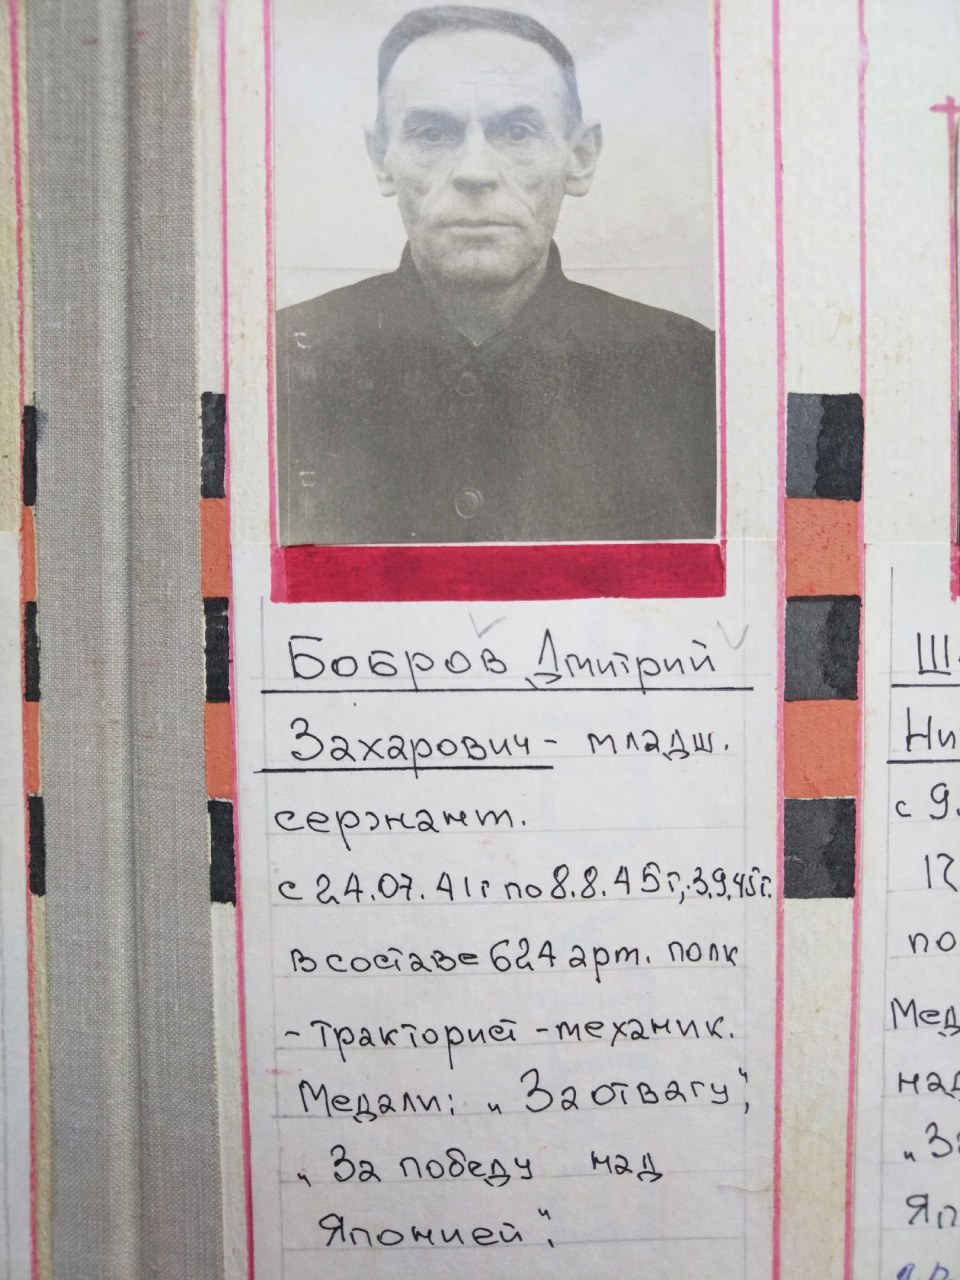 Бобров Дмитрий
Захарович - младш.
сержант.
с 24.07.41г по 8.8.45г, 3.9.45г.
в составе 624 арт. полк
- тракторист - механик.
Медали: „За отвагу",
„За победу над
Японией".
Ш
Ни
с 9.
по
Мед
над
„За
Яп